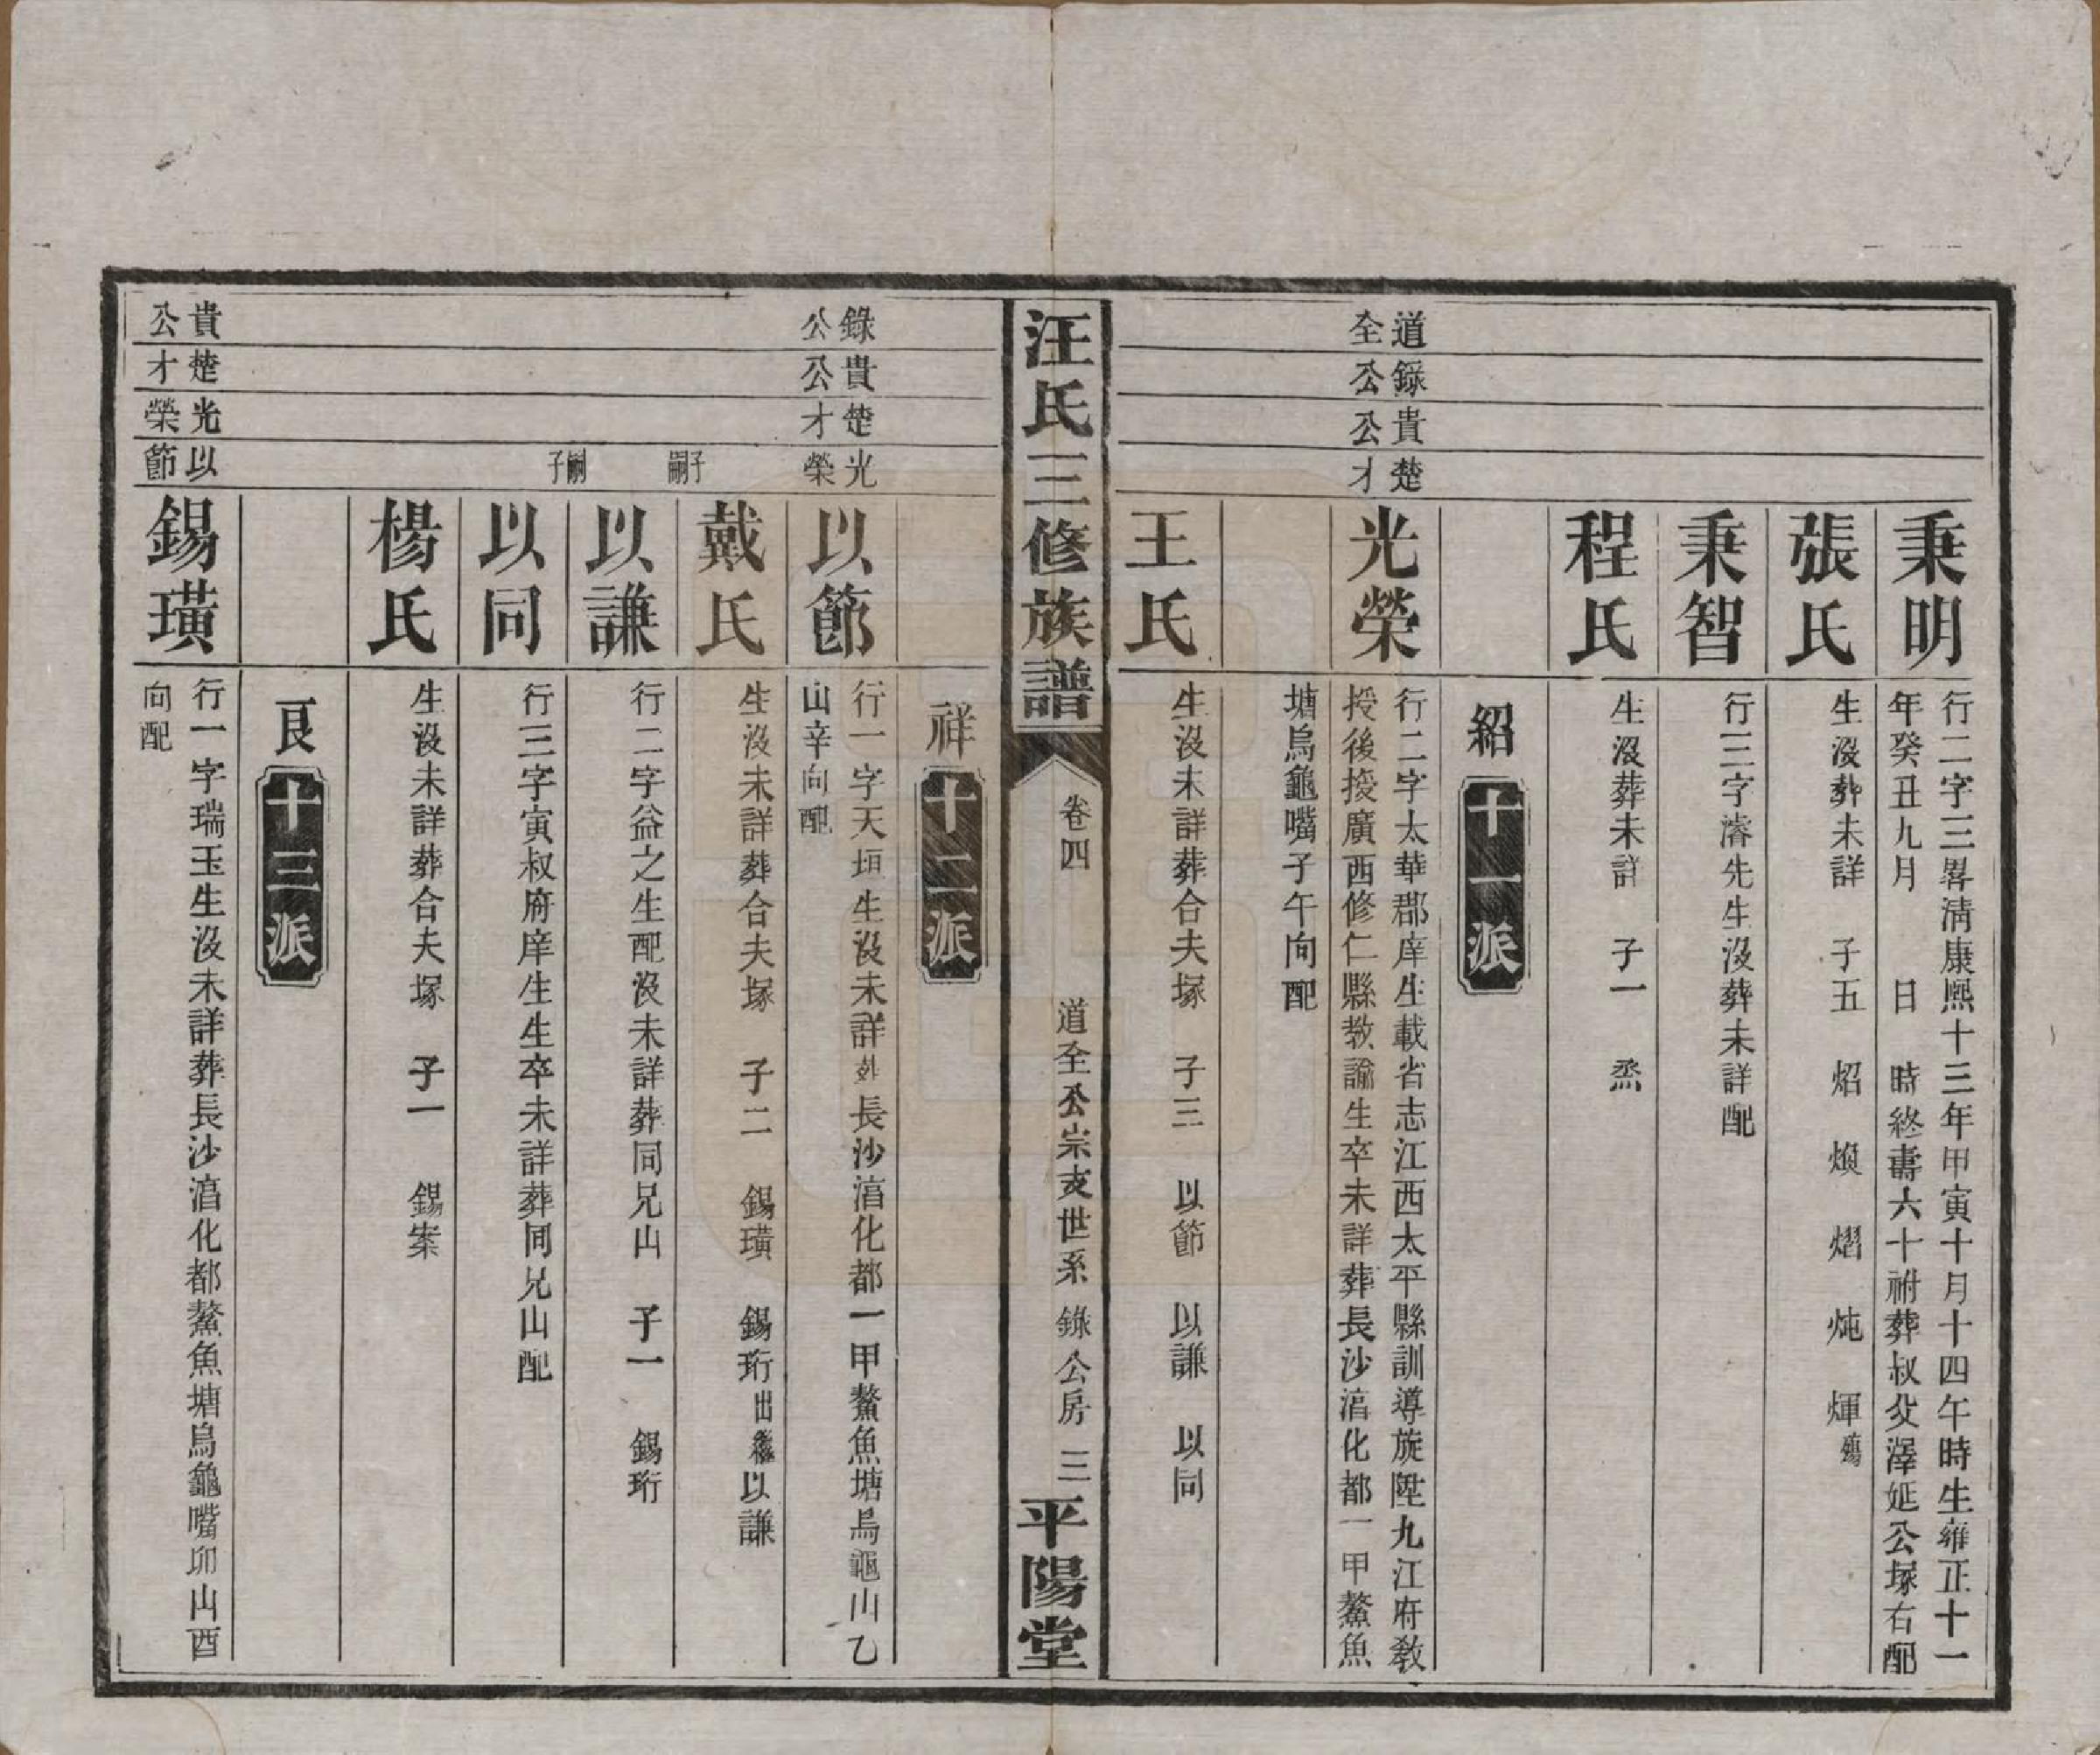 秉明
行二字三畧淸康熙十三年甲寅十月十四午時生雍正十一
年癸丑九月 日 時終壽六十祔葬叔父澤延公塚右配
張氏
生沒葬未詳 子五 炤 煥 熠 炖 煇殤
秉智
行三字濬先生沒葬未詳配
程氏
生沒葬未詳 子一 烝
紹 十一派
道全
錄公
貴公
楚才
光榮
行二字太華郡庠生載省志江西太平縣訓導旋陞九江府敎
授後授廣西修仁縣敎諭生卒未詳葬長沙淸化都一甲鰲魚
塘烏龜嘴子午向配
王氏
生沒未詳葬合夫塚 子三 以節 以謙 以同
汪氏三修族譜
卷四
道全公崇支世系 錄公房 三
平陽堂
祥 十二派
錄公
貴公
楚才
光榮
以節
行一字天垣生沒未詳葬長沙淸化都一甲鰲魚塘烏龜山乙
山辛向配
戴氏
生沒未詳葬合夫塚 子二 錫璜 錫珩出繼以謙
嗣子
以謙
行二字益之生配沒未詳葬同兄山 子一 錫珩
嗣子
以同
行三字寅叔府庠生生卒未詳葬同兄山配
楊氏
生沒未詳葬合夫塚 子一 錫案
良 十三派
貴公
楚才
光榮
以節
錫璜
行一字瑞玉生沒未詳葬長沙淸化都鰲魚塘烏龜嘴卯山酉
向配